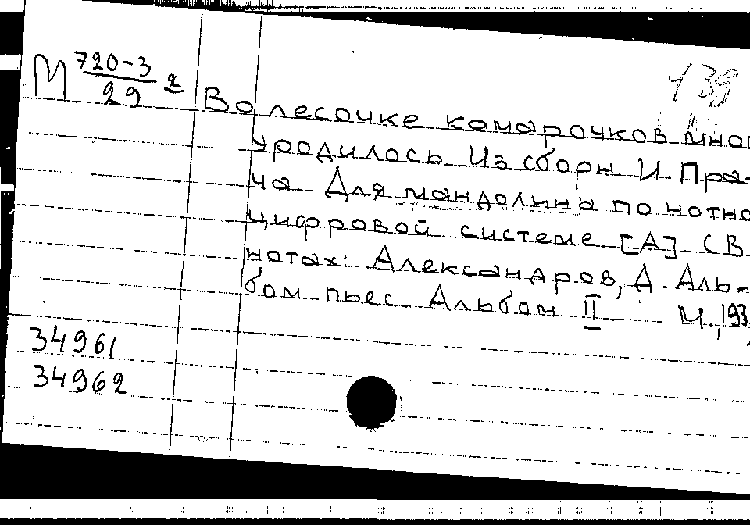 139
М 720-3/29 2
Во лесочке комарочков мно
уродилось Из сборн И. Пра-
ча Для мандолина по нотно
цифровой системе [А] (В
нотах: Александров, А. Аль-
бом пьес Альбом II М., 193
34961
34962